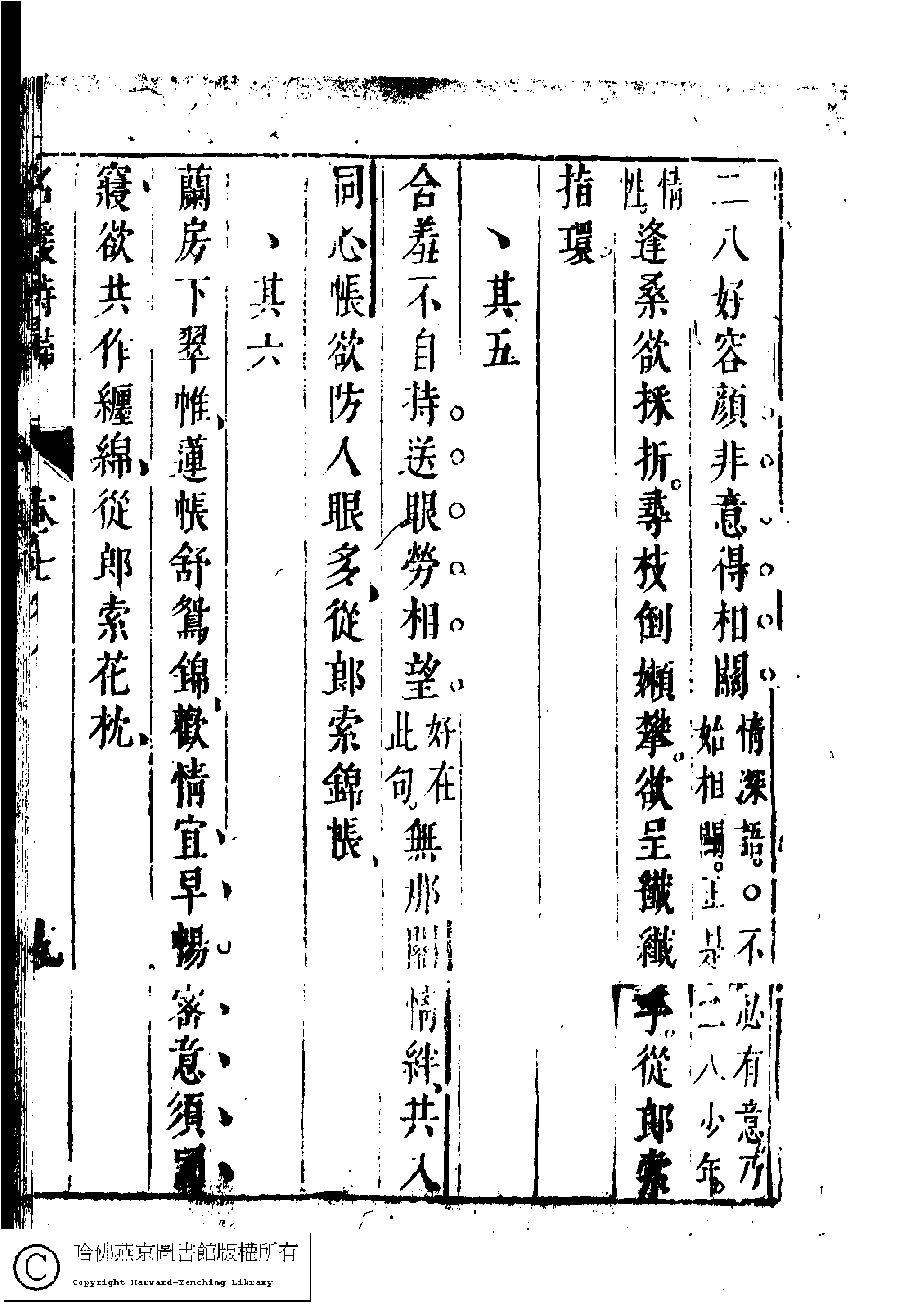 二八好容顏非意得相關情深語。不必有意乃
始相關。正是二八少年
情性。逢桑欲採折尋枝倒嬾攀欲呈纖纖手從郎索
指環
其五
含羞不自持送眼勞相望好在此句。無那關情絆共人
同心帳欲防人眼多從郎索錦帳
其六
蘭房下翠帷蓮帳舒鴛錦歡情宜早暢密意須
寢欲共作纏綿從郎索花枕
名媛詩歸
卷七
哈佛燕京圖書館版權所有
Copyright Harvard-Yenching Library